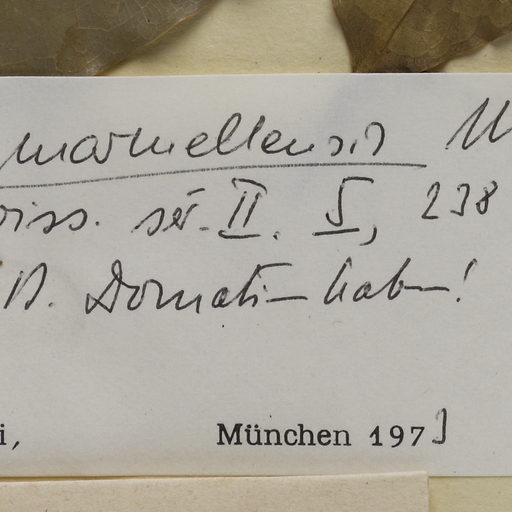 marmellensis
iss. sér. II. 5, 238
D. Donati hab!
i, München 197